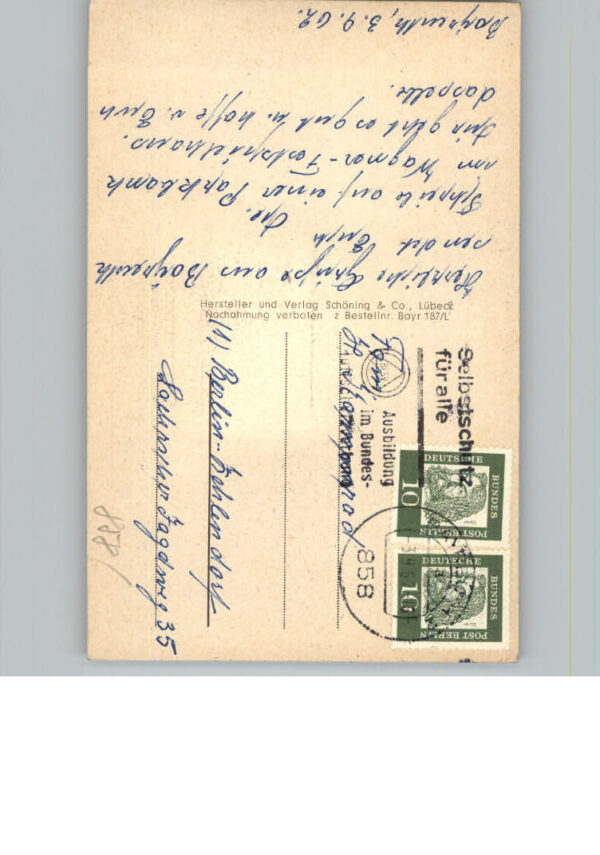 Herzliche Grüße aus Bayreuth
sendet Euch
Schreibe auf einer Parkbank
am Wagner-Festspielhaus.
Mir geht es gut u. hoffe v. Euch
dasselbe.
Bayreuth, 3.9.62.
Hersteller und Verlag Schöning & Co., Lübeck
Nachahmung verboten z Bestellnr. Bayr 187/L
Selbstschutz
für alle
Ausbildung
im Bundes-
858
DEUTSCHE
BUNDES
POST BERLIN
10
DEUTSCHE
BUNDES
POST BERLIN
10
Fam.
(1) Berlin-Zehlendorf
Laehrscher Jagdweg 35
858/